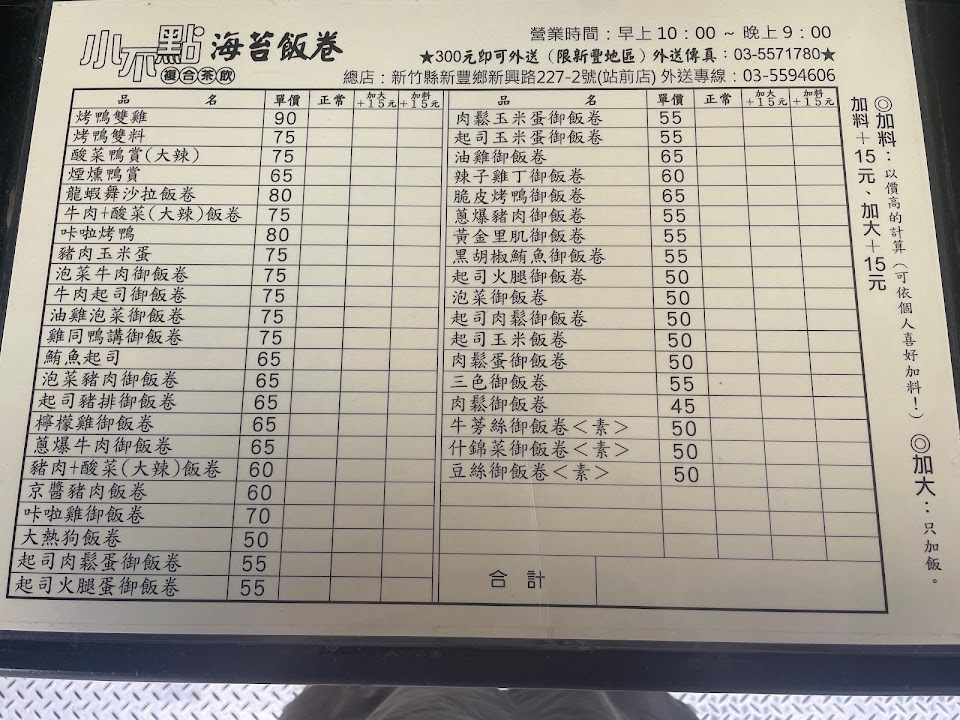 小不點 海苔飯卷
複合茶飲
營業時間：早上10：00 ~ 晚上9：00
★300元即可外送（限新豐地區）外送傳真：03-5571780★
總店：新竹縣新豐鄉新興路227-2號(站前店) 外送專線：03-5594606
品 名 單價 正常 加大+15元 加料+15元
烤鴨雙雞 90
烤鴨雙料 75
酸菜鴨賞(大辣) 75
煙燻鴨賞 65
龍蝦舞沙拉飯卷 80
牛肉+酸菜(大辣)飯卷 75
咔啦烤鴨 80
豬肉玉米蛋 75
泡菜牛肉御飯卷 75
牛肉起司御飯卷 75
油雞泡菜御飯卷 75
雞同鴨講御飯卷 75
鮪魚起司 65
泡菜豬肉御飯卷 65
起司豬排御飯卷 65
檸檬雞御飯卷 65
蔥爆牛肉御飯卷 65
豬肉+酸菜(大辣)飯卷 60
京醬豬肉飯卷 60
咔啦雞御飯卷 70
大熱狗飯卷 50
起司肉鬆蛋御飯卷 55
起司火腿蛋御飯卷 55
品 名 單價 正常 加大+15元 加料+15元
肉鬆玉米蛋御飯卷 55
起司玉米蛋御飯卷 55
油雞御飯卷 65
辣子雞丁御飯卷 60
脆皮烤鴨御飯卷 65
蔥爆豬肉御飯卷 55
黃金里肌御飯卷 55
黑胡椒鮪魚御飯卷 55
起司火腿御飯卷 50
泡菜御飯卷 50
起司肉鬆御飯卷 50
起司玉米飯卷 50
肉鬆蛋御飯卷 50
三色御飯卷 55
肉鬆御飯卷 45
牛蒡絲御飯卷＜素＞ 50
什錦菜御飯卷＜素＞ 50
豆絲御飯卷＜素＞ 50
合 計
◎加料：以價高的計算（可依個人喜好加料！）◎加大：只加飯。
加料＋15元、加大＋15元